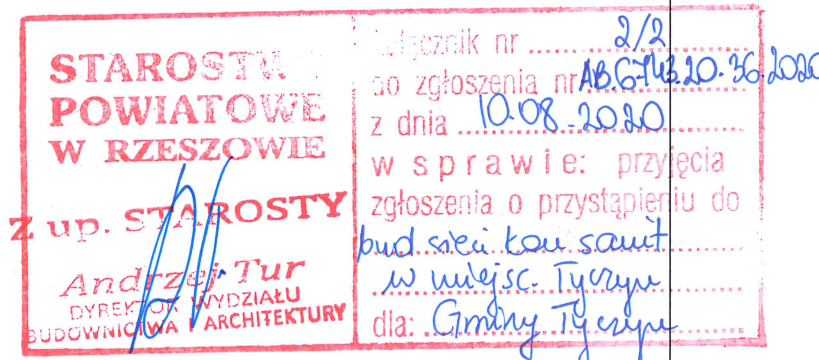 STAROSTWO
POWIATOWE
W RZESZOWIE
Z up. STAROSTY
Andrzej Tur
DYREKTOR WYDZIAŁU
BUDOWNICTWA I ARCHITEKTURY
Załącznik nr 2/2
do zgłoszenia nr AB.6743.20.36.2020
z dnia 10.08.2020
w sprawie: przyjęcia
zgłoszenia o przystąpieniu do
bud sieci kan sanit
w miejsc. Tyczyn
dla: Gminy Tyczyn